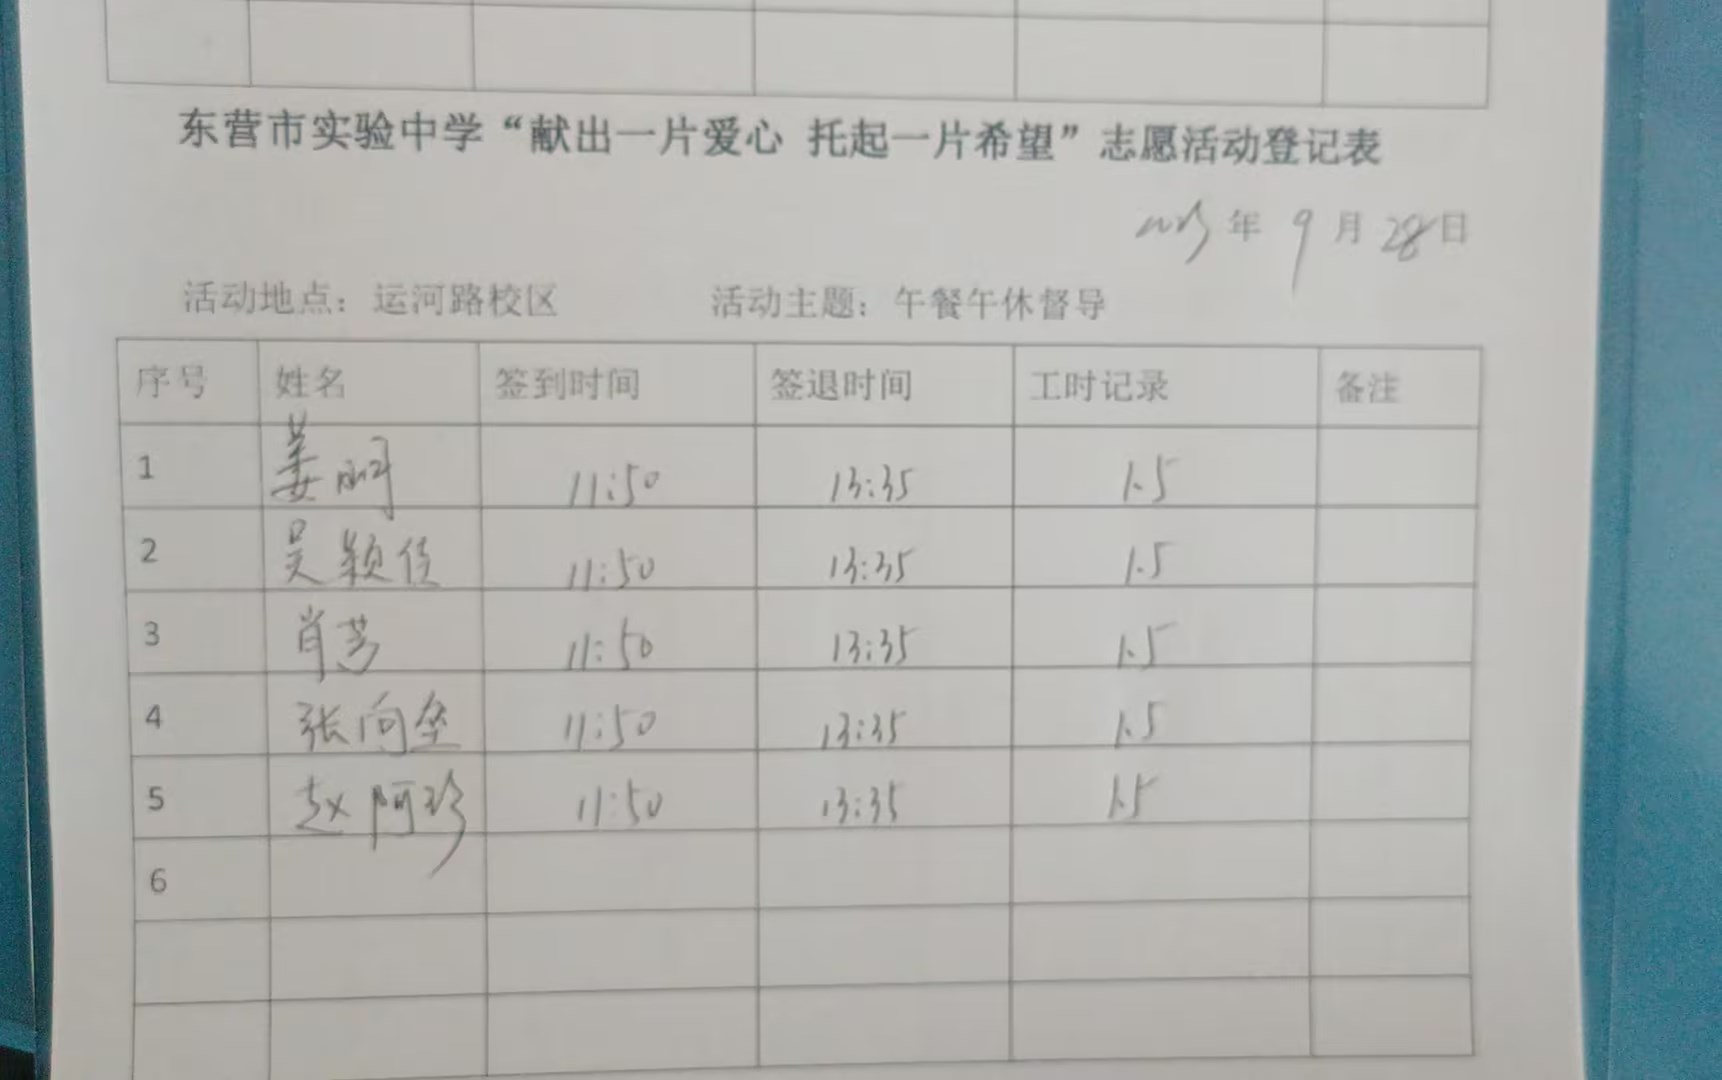 东营市实验中学“献出一片爱心 托起一片希望”志愿活动登记表
年 9 月 28 日
活动地点：运河路校区 活动主题：午餐午休督导
序号 姓名 签到时间 签退时间 工时记录 备注
1 姜 11:50 13:35 1.5
2 吴颖佳 11:50 13:35 1.5
3 肖 11:50 13:35 1.5
4 张向 11:50 13:35 1.5
5 赵阿珍 11:50 13:35 1.5
6